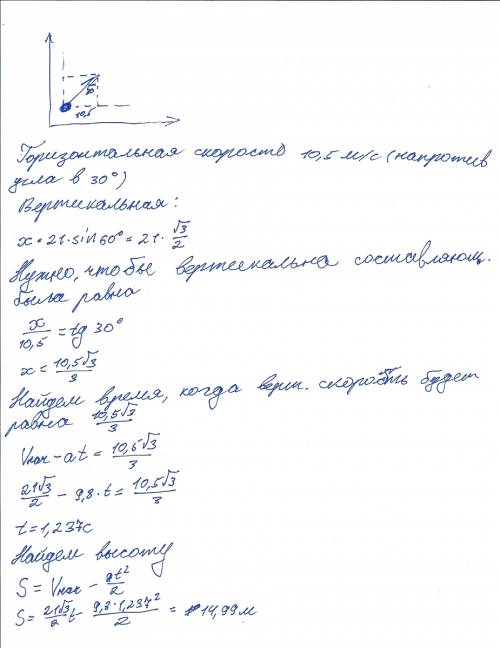 10,5
Горизонтальная скорость 10,5 м/с (напротив
угла в 30°)
Вертикальная:
x = 21·sin 60° = 21·√3/2
Нужно, чтобы вертикальна составляющ.
была равна
x/10,5 = tg 30°
x = 10,5√3/3
Найдем время, когда верт. скорость будет
равна 10,5√3/3
Vнач - at = 10,5√3/3
21√3/2 - 9,8·t = 10,5√3/3
t = 1,237с
Найдем высоту
S = Vнач - gt²/2
S = 21√3/2 t - 9,8·1,237²/2 = 14,99м